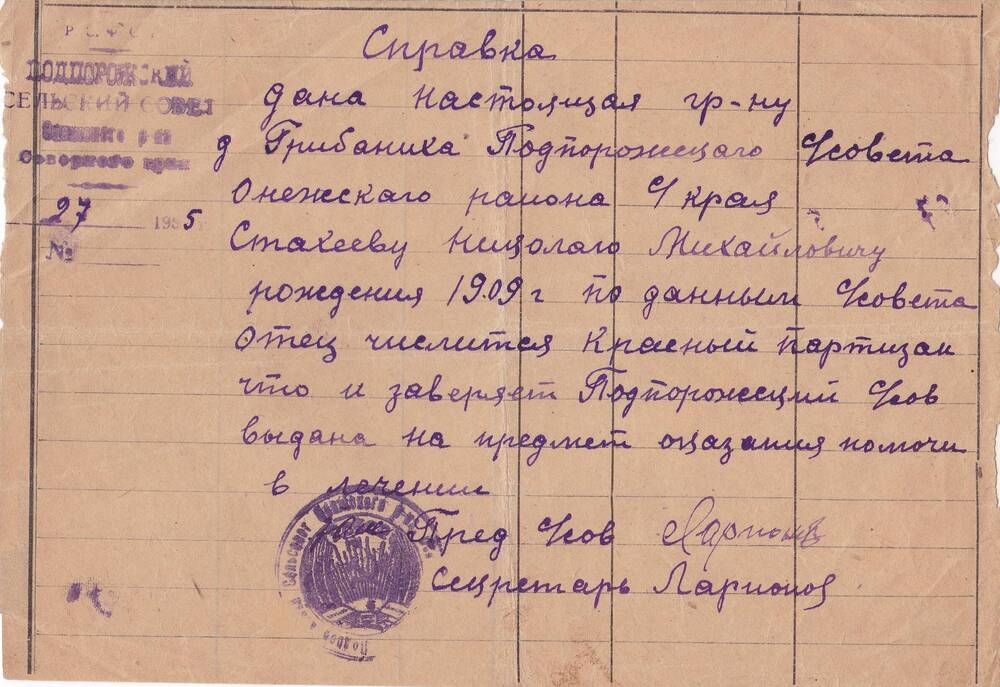 Р С Ф С Р
ПОДПОРОЖСКИЙ
СЕЛЬСКИЙ СОВЕТ
Онежского р-на
Северного края
27 1935
№
Справка
дана настоящая гр-ну
д Грибаниха Подпорожецаго С/совета
Онежскаго района С/края
Стахееву Ницолаго Михайловичу
рождения 1909 г по данным С/совета
отец числится Красный партизан
что и заверяет Подпорожеций С/сов
выдана на предмет оцазания помочи
в лечении
Пред С/сов Ларионов
Сецретарь Ларионов
Сельсовет Онежского р-на